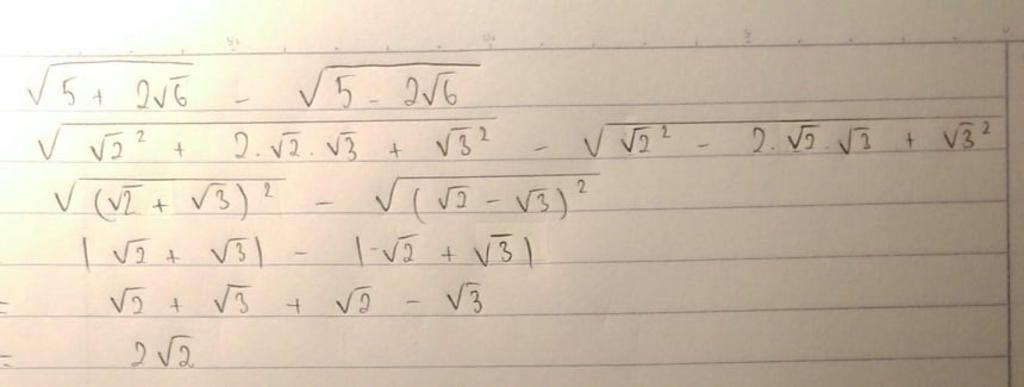 √(5 + 2√6) - √(5 - 2√6)
√(√2² + 2.√2.√3 + √3²) - √(√2² - 2.√2.√3 + √3²)
√(√2 + √3)² - √(√2 - √3)²
|√2 + √3| - |-√2 + √3|
= √2 + √3 + √2 - √3
= 2√2